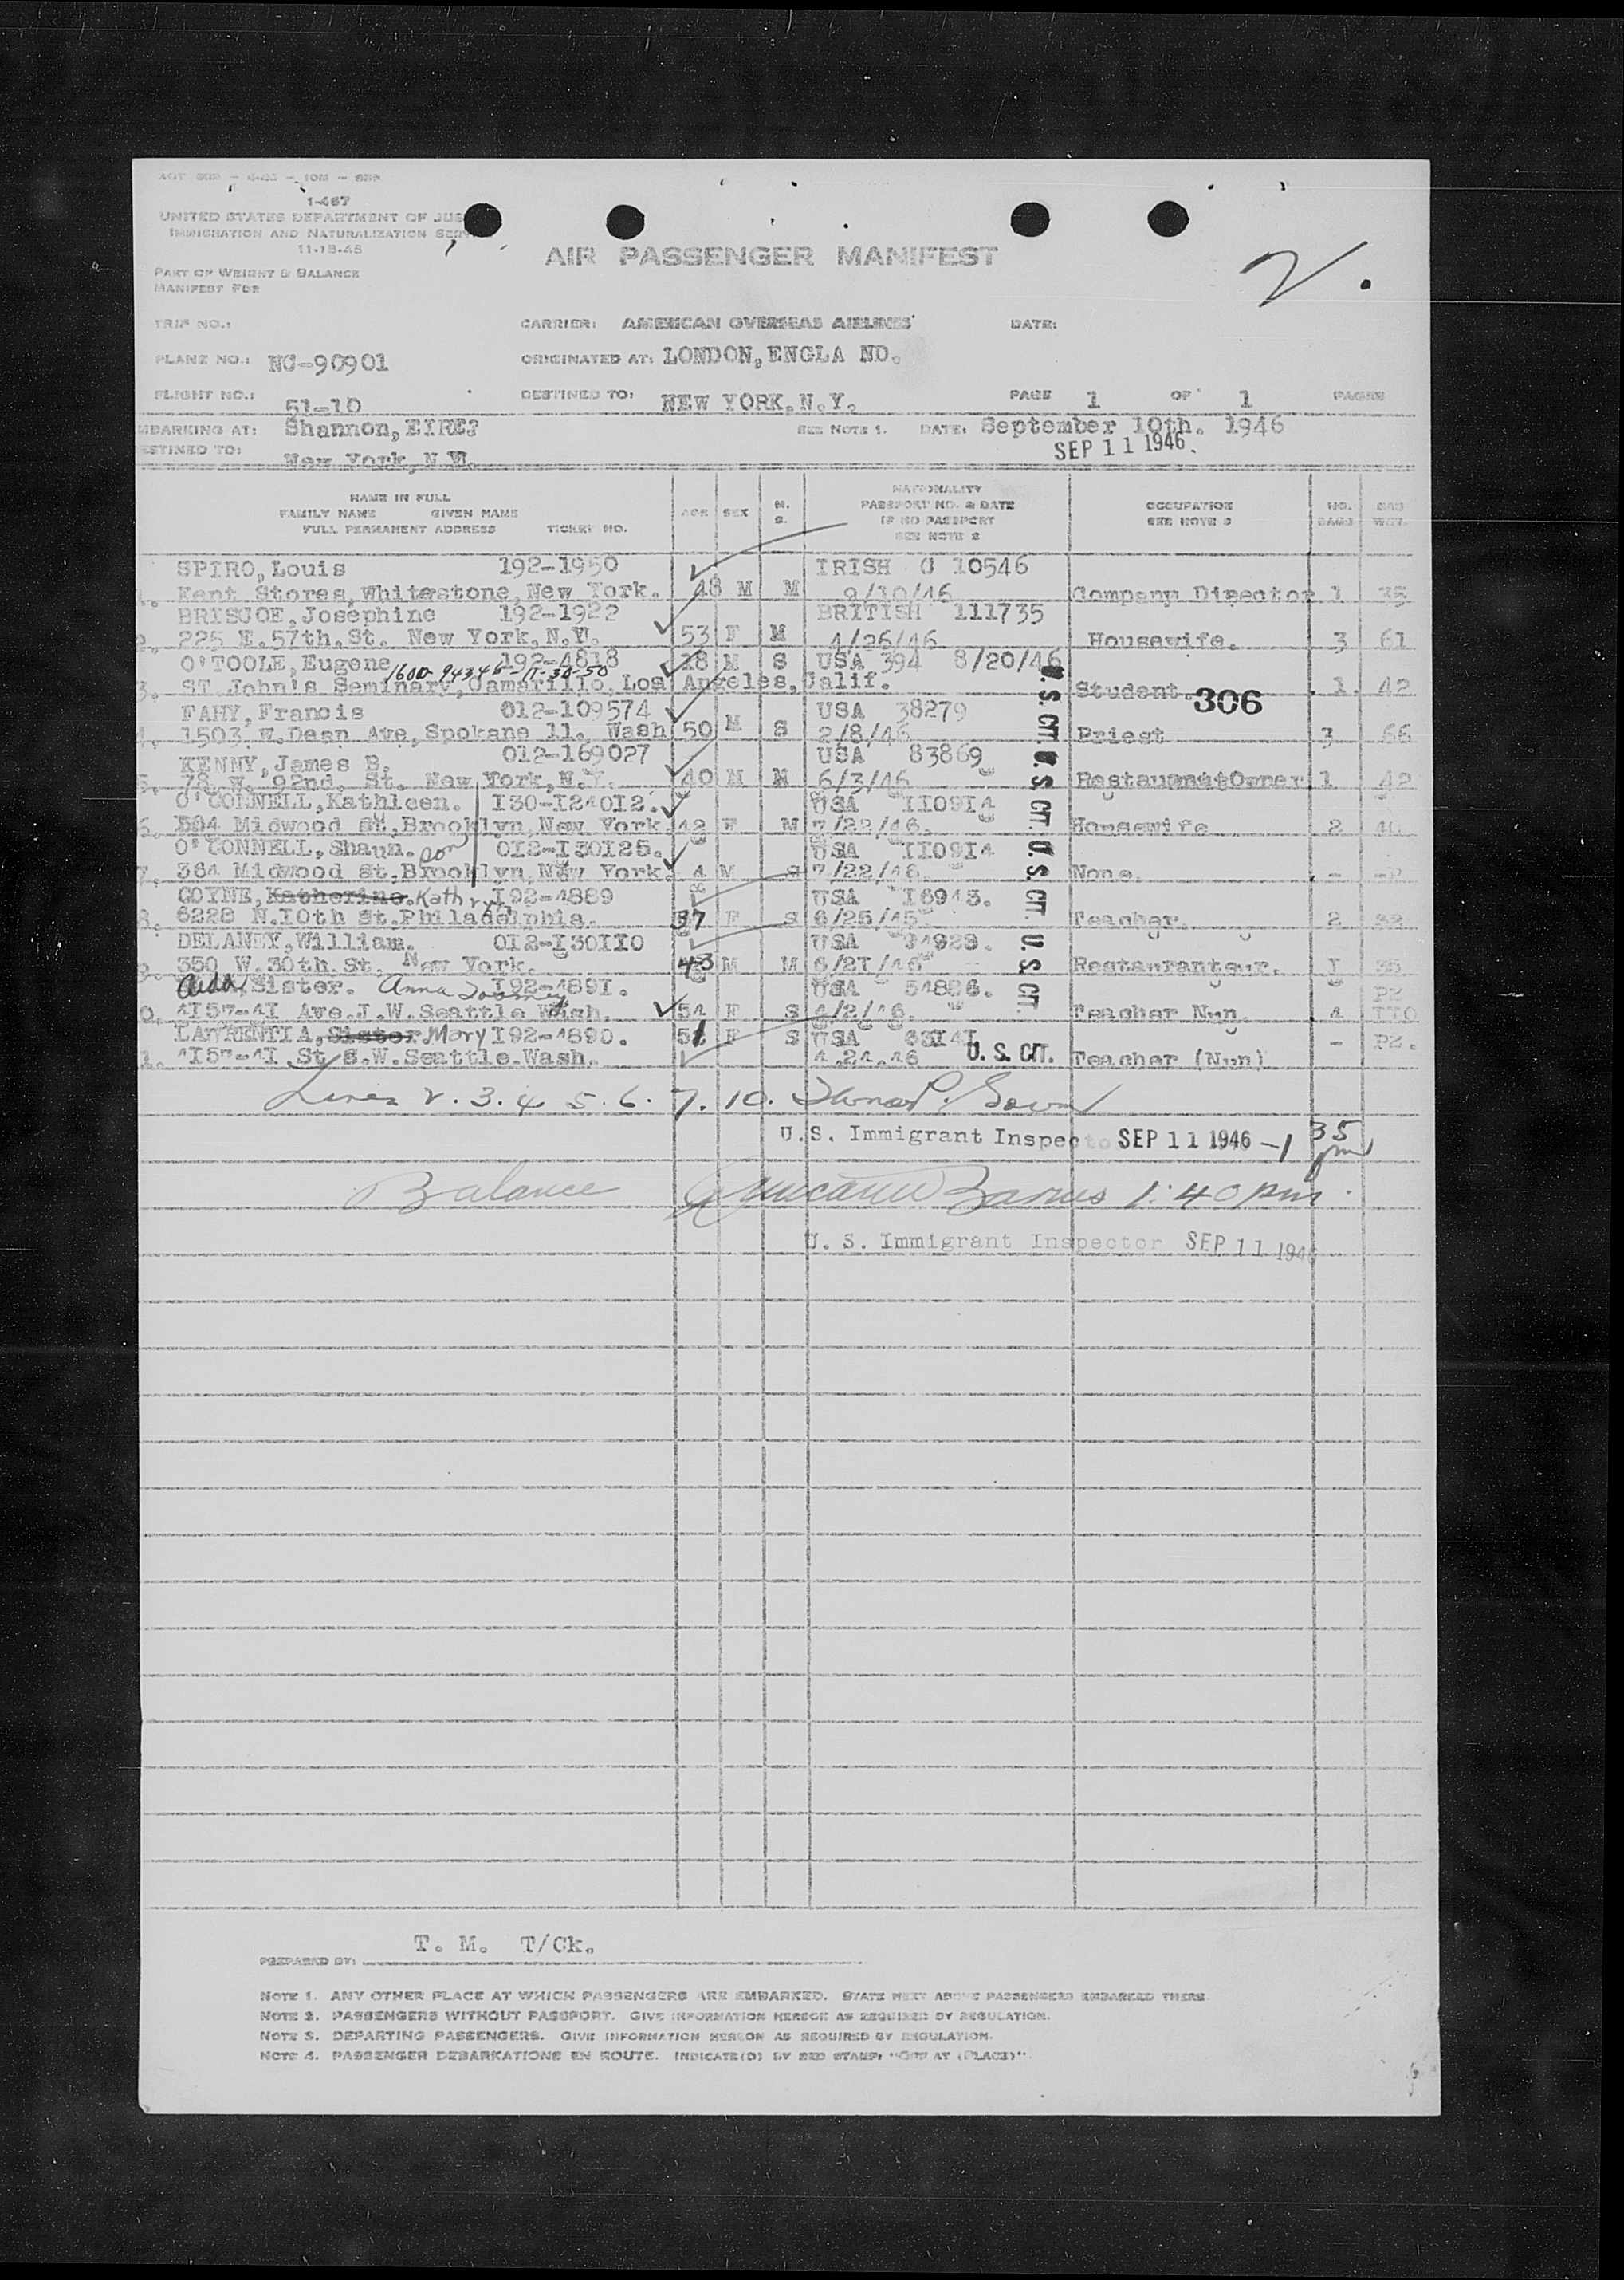 1-467
UNITED STATES DEPARTMENT OF JUS
IMMIGRATION AND NATURALIZATION SERV
11-15-45
AIR PASSENGER MANIFEST
2.
PART OF WEIGHT & BALANCE
MANIFEST FOR
TRIP NO.: CARRIER: AMERICAN OVERSEAS AIRLINES DATE:
PLANE NO.: NC-90901 ORIGINATED AT: LONDON, ENGLA ND.
FLIGHT NO.: 51-10 DESTINED TO: NEW YORK, N.Y. PAGE 1 OF 1 PAGES
MBARKING AT: Shannon, EIRE? SEE NOTE 1. DATE: September 10th. 1946
SEP 11 1946.
ESTINED TO: New York, N.Y.
NAME IN FULL
FAMILY NAME GIVEN NAME
FULL PERMANENT ADDRESS TICKET NO.
AGE SEX M. S.
NATIONALITY
PASSPORT NO. & DATE
IF NO PASSPORT
SEE NOTE 2
OCCUPATION
SEE NOTE 3
NO. BAGS
BAG WGT.
SPIRO, Louis 192-1950 IRISH C 10546
1. Kent Stores, Whitestone, New York. 48 M M 9/10/46 Company Director 1 35
BRISCOE, Josephine 192-1922 BRITISH 111735
2. 225 E. 57th. St. New York, N.Y. 53 F M 4/26/46 Housewife. 3 61
O'TOOLE, Eugene 192-4818 28 M S USA 394 8/20/46
1600-94346-11-30-50
3. ST John's Seminary, Camarillo, Los Angeles, Calif. Student. 306 1. 42
FAHY, Francis 012-109574 USA 38279
4. 1503 W. Dean Ave, Spokane 11. Wash 50 M S 2/8/46 Priest 3 66
KENNY, James B. 012-169027 USA 83869
5. 78 W. 92nd. St. New York, N.Y. 40 M M 6/3/46 Restaurant Owner 1 42
O'CONNELL, Kathleen. I30-I24012. USA II09I4
6. 384 Midwood St, Brooklyn, New York. 42 F M 7/22/46. Housewife 2 40
O'CONNELL, Shaun. son 0I2-I30I25. USA II09I4
7. 384 Midwood St. Brooklyn, New York. 4 M S 7/22/46. None. - -
COYNE, Katherine. Kathryn I92-4889 USA I6943.
8. 6228 N. I0th St. Philadelphia. 37 F S 6/25/45 Teacher. 2 32
DELANEY, William. 0I2-I30II0 USA 34928.
9. 350 W. 30th. St. New York. 43 M M 6/2I/46 Restauranteur. I 35
Aida, Sister. Anna Toomey I92-489I. USA 54886. P2
0. 4I57-4I Ave. J. W. Seattle Wash. 54 F S 4/2/46. Teacher Nun. 4 II0
LAURENTIA, Sister Mary I92-4890. 51 F S USA 63I4I - P2.
1. 4I57-4I St S. W. Seattle. Wash. 4.24.46 U. S. CIT. Teacher (Nun)
U. S. CIT.
U. S. CIT.
U. S. CIT.
U. S. CIT.
Lines 2. 3. 4 5. 6. 7. 10.
U.S. Immigrant Inspecto SEP 11 1946 - 1 35 pm
Balance Barnes 1:40 pm.
U. S. Immigrant Inspector SEP 11 1946
T. M. T/Ck.
PREPARED BY:
NOTE 1. ANY OTHER PLACE AT WHICH PASSENGERS ARE EMBARKED. STATE NEXT ABOVE PASSENGERS EMBARKED THERE
NOTE 2. PASSENGERS WITHOUT PASSPORT. GIVE INFORMATION HEREON AS REQUIRED BY REGULATION.
NOTE 3. DEPARTING PASSENGERS. GIVE INFORMATION HEREON AS REQUIRED BY REGULATION.
NOTE 4. PASSENGER DEBARKATIONS EN ROUTE. INDICATE(D) BY RED STAMP: "OFF AT (PLACE)".